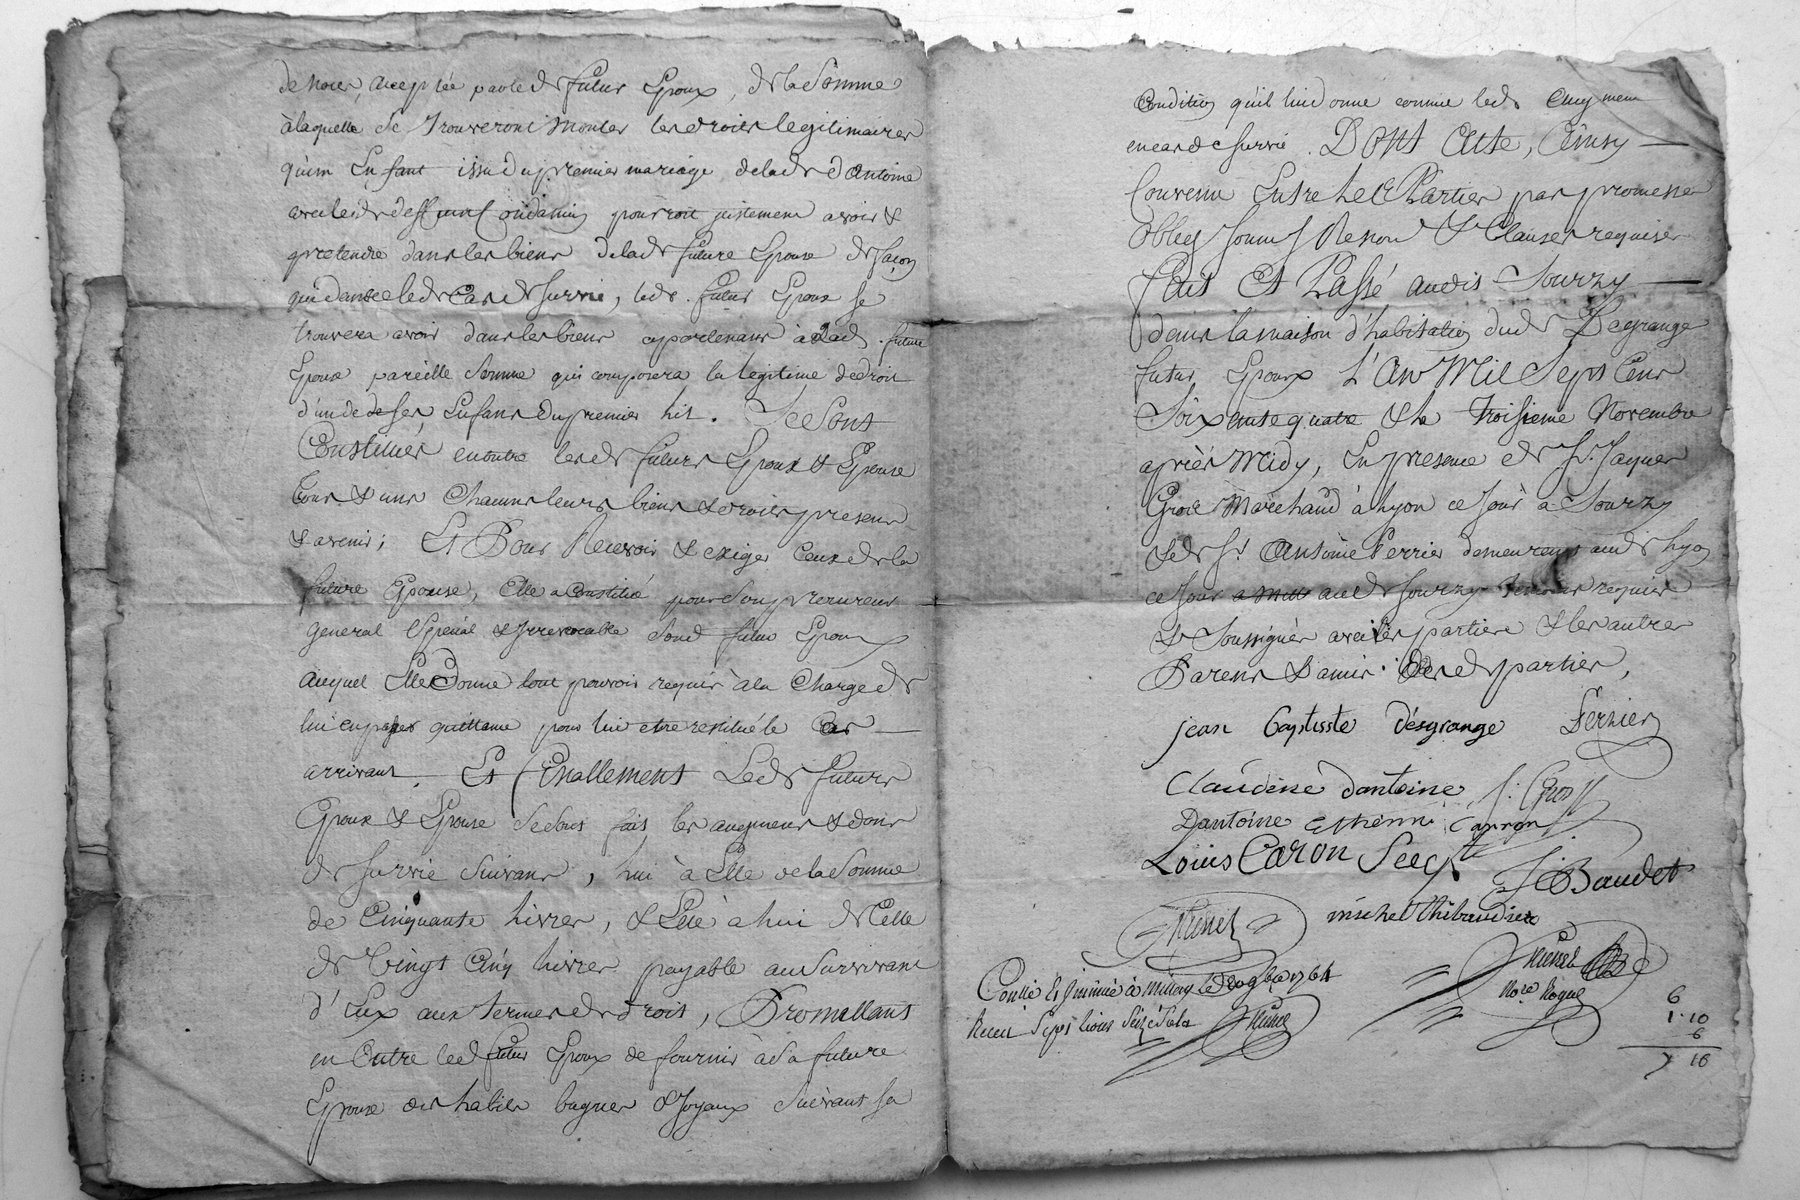 de noces, acceptée par led. futur Epoux, de la Somme
à laquelle Se trouveront monter les droits legitimaires
qu'un Enfant issu du premier mariage de lad. dantoine
avec led. deffunt pourroit justement avoir &
pretendre dans les biens de lad. future Epouse de façon
que dans le d. cas de survie, led. futur Epoux se
trouvera avoir dans les biens appartenants à lad. future
Epouse pareille Somme qui composera la legitime de droit
d'un de ses Enfans du premier lit. Se Sont
Constitués en outre lesd. futurs Epoux & Epouse
tous & uns Chacuns leurs biens & droits presens
& avenir; Et Pour Recevoir & exiger Ceux de la
future Epouse, Elle a Constitué pour Son procureur
general Special & Irrevocable Sond. futur Epoux
auquel Elle Donne tout pouvoir requis à la Charge de
lui en passer quittance pour lui etre restitué le Cas
arrivant. Et finallement Lesd. futurs
Epoux & Epouse Se Sont fait les augments & dons
de Survie Suivans, lui à Elle de la Somme
de Cinquante livres, & Elle à lui de Celle
de Vingt Cinq livres payable au Survivant
d'Eux aux termes de droit, Promettant
en Outre led. futur Epoux de fournir à Sa future
Epouse des habits bagues & Joyaux Suivant Sa
Condition qu'il lui donne comme led.
en cas de Survie. DONT Acte, Ainsy
Convenu Entre les Parties par promesses
Oblig. Soum. Renon. & Clauses requises
Fait Et Passé audit Sourzy
dans la maison d'habitation dud. Degrange
futur Epoux L'An Mil Sept Cent
Soixante quatre & le troisieme Novembre
après Midy, En presence de Sr. Jaques
Marchand à Lyon ce Jour à Sourzy
& de Sr. Antoine Perrier demeurant aud. Lyon
ce Jour aud. Sourzy temoins requis
& Soussignés avec les parties & les autres
Parens & amis desd. parties,
jean baptisste désgrange Perrier
Claudine dantoine
Dantoine Caron
Louis Caron
Baudet
michel thibaudier
Thenet
Thenet
Not.re Royal
Conllé Et Insinué à Millery le 9bre 1764
Recu Sept livres Seize Sols Thenet
6
1·10
6
7 16